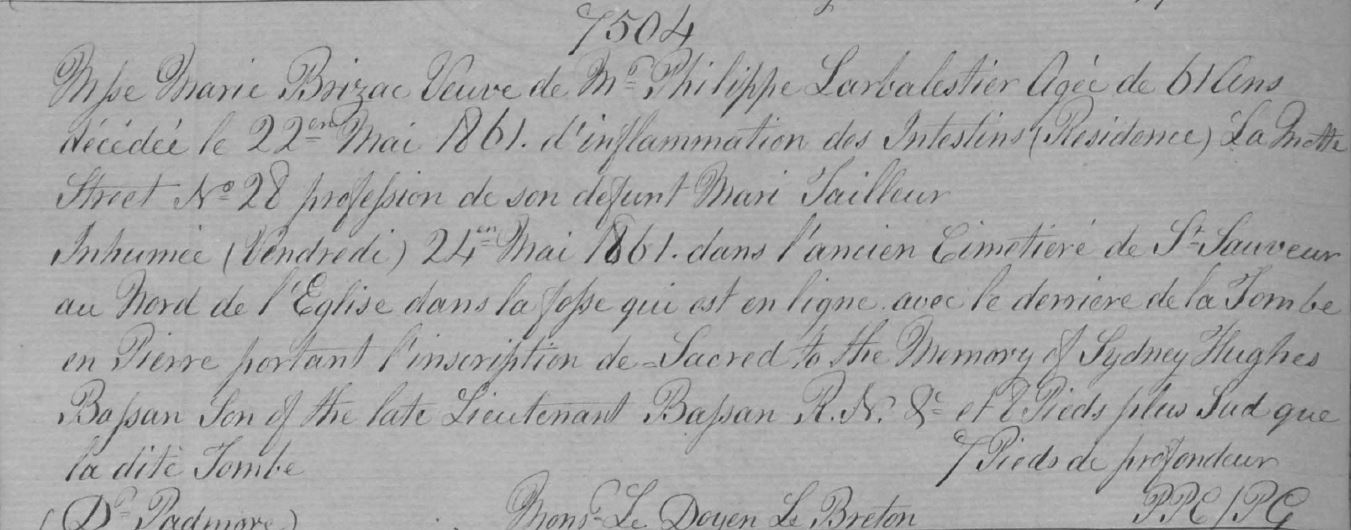 7504
Msse Marie Brizac Veuve de Mr. Philippe Larbalestier Agée de 61 Ans
décédée le 22en Mai 1861. d'inflammation des Intestins (Residence) La Motte
Street No 28 profession de son defunt Mari Tailleur
Inhumée (Vendredi) 24en Mai 1861. dans l'ancien Cimetiére de St. Sauveur
au Nord de l'Eglise dans la fosse qui est en ligne avec le derriere de la Tombe
en Pierre portant l'inscription de Sacred to the Memory of Sydney Hughes
Bassan Son of the late Lieutenant Bassan R.N. &c et 8 Pieds plus Sud que
la dite Tombe 7 Pieds de profondeur
(Dr Padmore) Monsr Le Doyen Le Breton